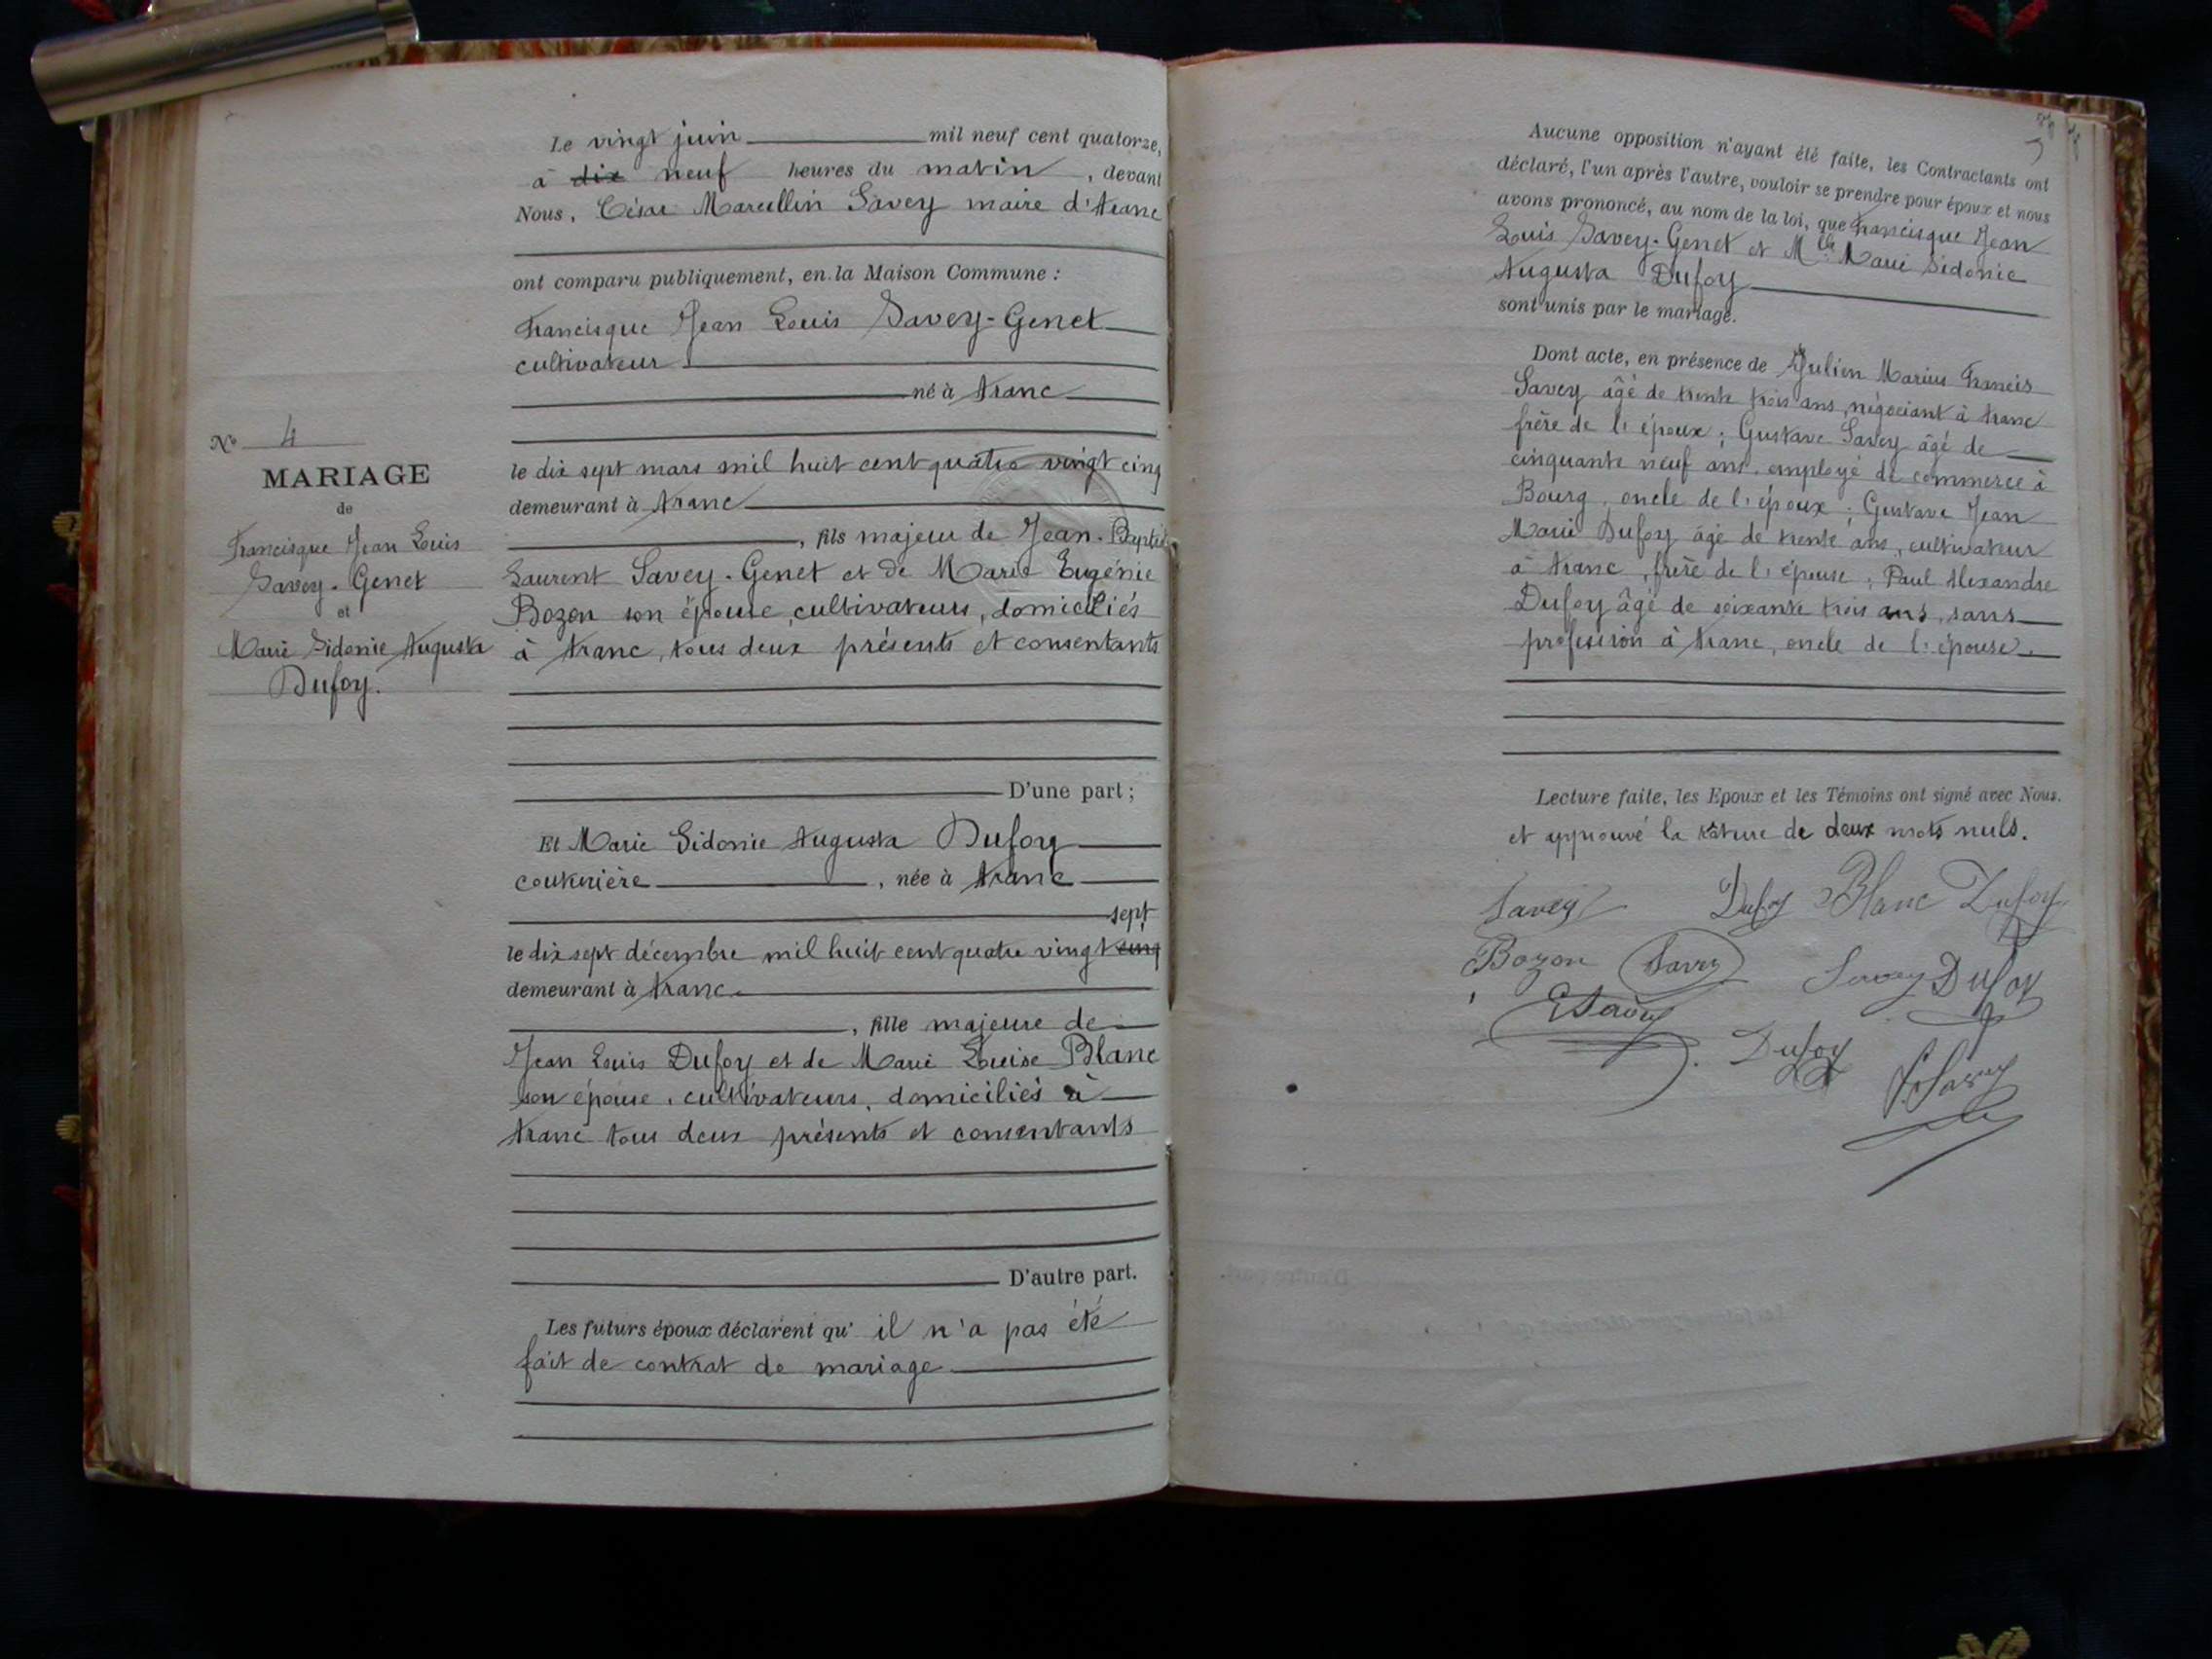 Le vingt juin mil neuf cent quatorze,
à dix neuf heures du matin, devant
Nous, César Marcellin Savey maire d'Aranc
ont comparu publiquement, en la Maison Commune :
Francisque Jean Louis Savey-Genet
cultivateur
né à Aranc
le dix sept mars mil huit cent quatre vingt cinq
demeurant à Aranc
, fils majeur de Jean-Baptiste
Laurent Savey-Genet et de Marie Eugénie
Bozon son épouse, cultivateurs, domiciliés
à Aranc, tous deux présents et consentants
D'une part ;
Et Marie Sidonie Augusta Dufoy
couturière, née à Aranc
sept
le dix sept décembre mil huit cent quatre vingt cinq
demeurant à Aranc
, fille majeure de
Jean Louis Dufoy et de Marie Louise Blanc
son épouse, cultivateurs, domiciliés à
Aranc tous deux présents et consentants
D'autre part.
Les futurs époux déclarent qu'il n'a pas été
fait de contrat de mariage
No 4
MARIAGE
de
Francisque Jean Louis
Savey-Genet
et
Marie Sidonie Augusta
Dufoy.
Aucune opposition n'ayant été faite, les Contractants ont
déclaré, l'un après l'autre, vouloir se prendre pour époux et nous
avons prononcé, au nom de la loi, que Francisque Jean
Louis Savey-Genet et Mlle Marie Sidonie
Augusta Dufoy
sont unis par le mariage.
Dont acte, en présence de Julien Marius Francis
Savey âgé de trente trois ans, négociant à Aranc
frère de l'époux ; Gustave Savey âgé de
cinquante neuf ans, employé de commerce à
Bourg, oncle de l'époux ; Gustave Jean
Marie Dufoy âgé de trente ans, cultivateur
à Aranc, frère de l'épouse ; Paul Alexandre
Dufoy âgé de soixante trois ans, sans
profession à Aranc, oncle de l'épouse.
Lecture faite, les Epoux et les Témoins ont signé avec Nous.
et approuvé la rature de deux mots nuls.
Savey Dufoy Blanc Dufoy
Bozon Savey Savey Dufoy
Savey Dufoy
Savey